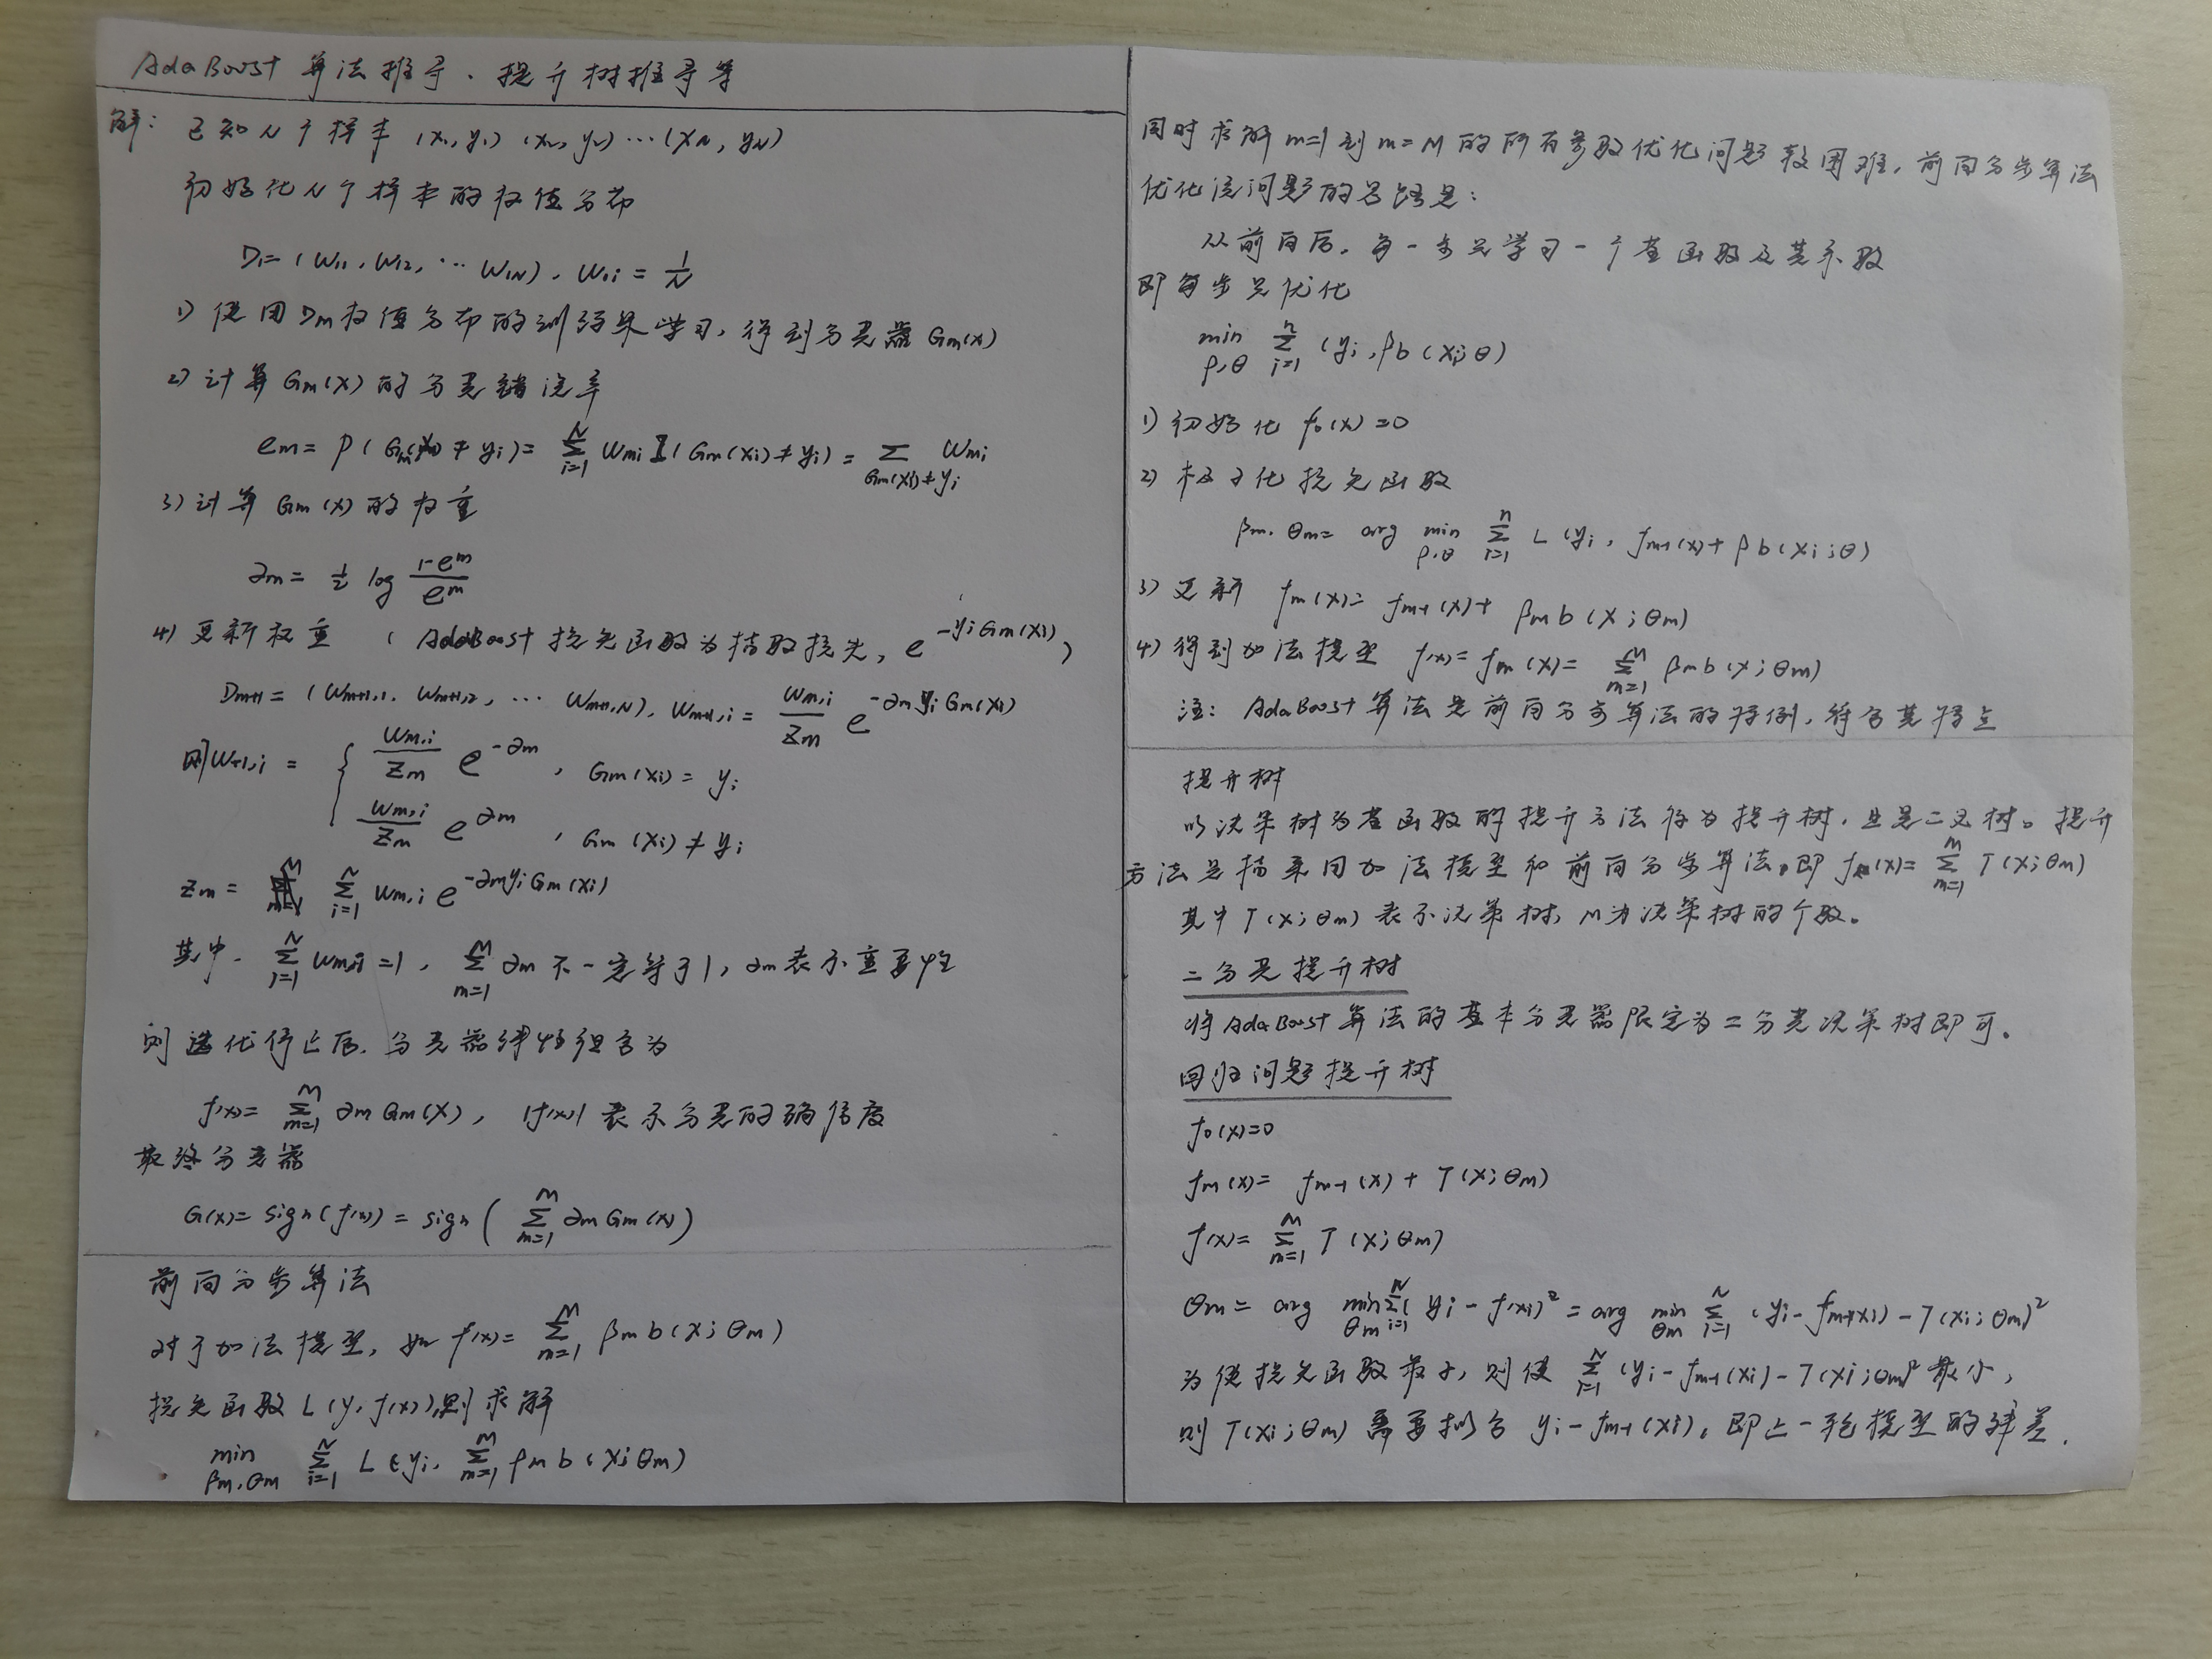 AdaBoost 算法推导、提升树推导等
解: 已知N个样本 (x₁,y₁) (x₂,y₂) ⋯ (x_N, y_N)
初始化N个样本的权值分布
D₁=(w₁₁, w₁₂, ⋯ w₁N), w₁ᵢ = 1/N
1) 使用Dm权值分布的训练集学习, 得到分类器 Gm(x)
2) 计算Gm(x)的分类错误率
em = P(Gm(xi) ≠ yi) = Σ_{i=1}^{N} wmi I(Gm(xi) ≠ yi) = Σ_{Gm(xi)≠yi} wmi
3) 计算 Gm(x) 的权重
∂m = 1/2 log (1-em)/em
4) 更新权重 (AdaBoost 损失函数为指数损失, e^{-yiGm(xi)})
Dm+1 = (wm+1,1, wm+1,2, ⋯ wm+1,N), wm+1,i = (wm,i/Zm) e^{-∂m yi Gm(xi)}
则 w+1,i = { (wm,i/Zm) e^{-∂m}, Gm(xi) = yi
(wm,i/Zm) e^{∂m}, Gm(xi) ≠ yi
Zm = Σ_{i=1}^{N} wm,i e^{-∂myiGm(xi)}
其中, Σ_{i=1}^{N} wm,i = 1, Σ_{m=1}^{M} ∂m 不一定等于1, ∂m表示重要性
则迭代停止后, 分类器线性组合为
f(x) = Σ_{m=1}^{M} ∂m Gm(x), |f(x)| 表示分类的确信度
最终分类器
G(x) = sign(f(x)) = sign( Σ_{m=1}^{M} ∂m Gm(x) )
前向分步算法
对于加法模型, 如 f(x) = Σ_{m=1}^{M} βm b(x; θm)
损失函数 L(y, f(x)), 则求解
min_{βm,θm} Σ_{i=1}^{N} L(yi, Σ_{m=1}^{M} βm b(xi; θm)
同时求解 m=1 到 m=M 的所有参数优化问题较困难, 前向分步算法
优化该问题的思路是:
从前向后, 每一步只学习一个基函数及其系数
即每步只优化
min_{β,θ} Σ_{i=1}^{n} (yi, βb(xi;θ)
1) 初始化 f₀(x) = 0
2) 极小化损失函数
βm, θm = arg min_{β,θ} Σ_{i=1}^{n} L(yi, fm-1(x) + βb(xi;θ)
3) 更新 fm(x) = fm-1(x) + βm b(x; θm)
4) 得到加法模型 f(x) = fm(x) = Σ_{m=1}^{M} βm b(x; θm)
注: AdaBoost 算法是前向分步算法的特例, 符合其特点
提升树
以决策树为基函数的提升方法称为提升树, 且是二叉树。提升
方法是指采用加法模型和前向分步算法, 即 f(x) = Σ_{m=1}^{M} T(x; θm)
其中 T(x; θm) 表示决策树, M为决策树的个数。
二分类提升树
将AdaBoost算法的基本分类器限定为二分类决策树即可。
回归问题提升树
f₀(x)=0
fm(x) = fm-1(x) + T(x; θm)
f(x) = Σ_{m=1}^{M} T(x; θm)
θm = arg min_{θm} Σ_{i=1}^{N} (yi - f(xi)² = arg min_{θm} Σ_{i=1}^{N} (yi - fm-1(xi) - T(xi; θm)²
为使损失函数最小, 则使 Σ_{i=1}^{N} (yi - fm-1(xi) - T(xi; θm)² 最小,
则 T(xi; θm) 需要拟合 yi - fm-1(xi), 即上一轮模型的残差.